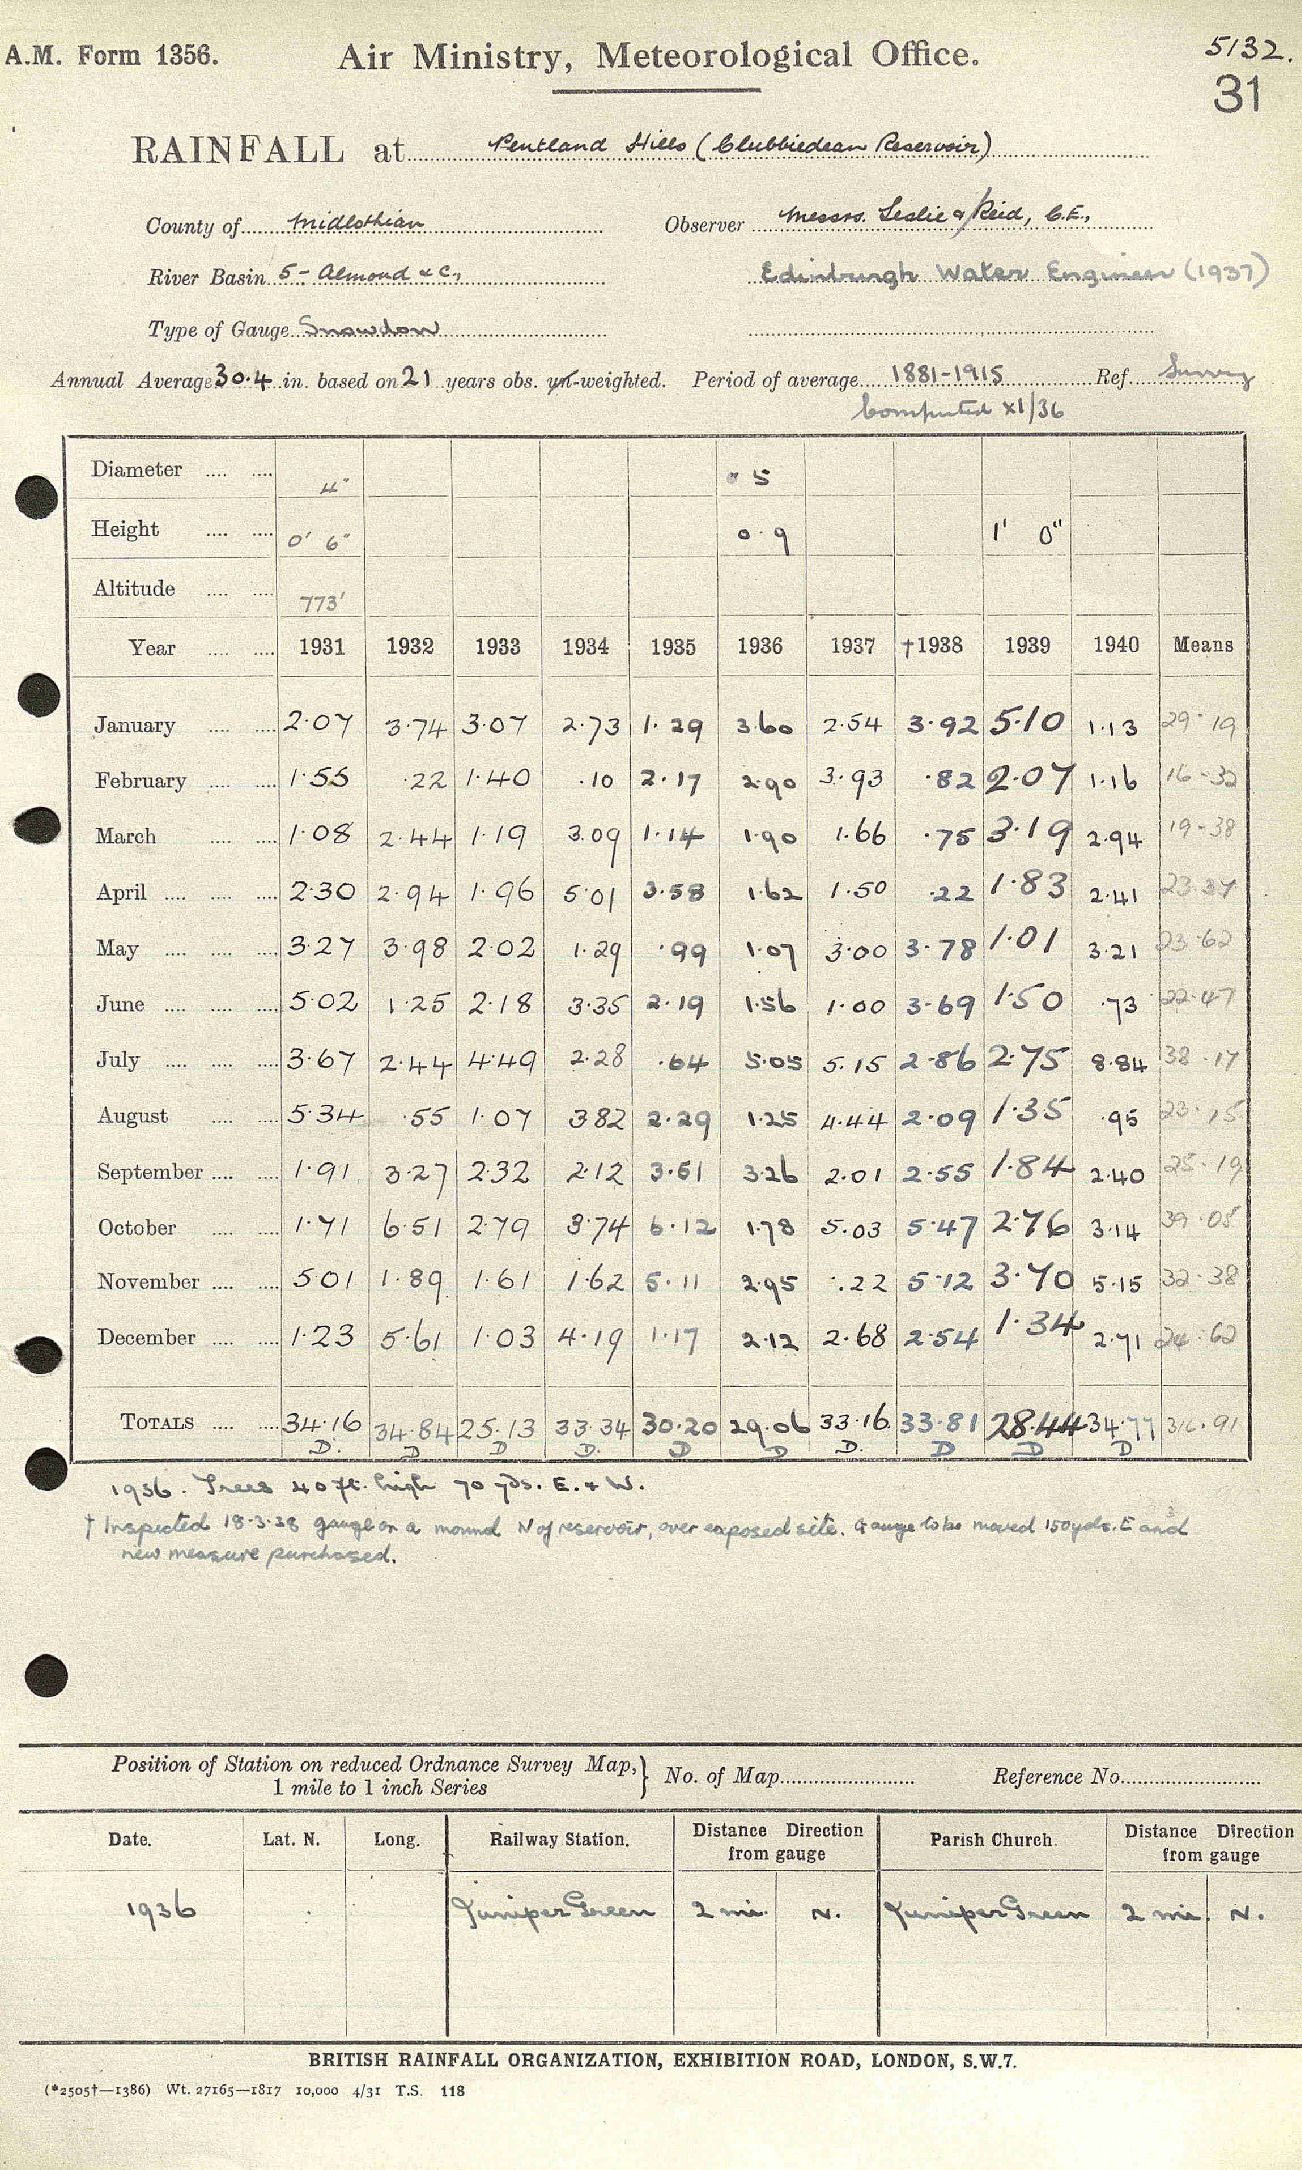 A.M. Form 1356. Air Ministry, Meteorological Office. 5132.
31
RAINFALL at Pentland Hills (Clubbiedean Reservoir)
County of Midlothian Observer Messrs. Leslie & Reid, C.E.,
River Basin 5 - Almond &c, Edinburgh Water Engineer (1937)
Type of Gauge Snowdon
Annual Average 30.4 in. based on 21 years obs. un-weighted. Period of average 1881-1915 Ref. Survey
Computed XI/36
Diameter .... .... 4" " 5
Height .... .... 0' 6" 0.9 1' 0"
Altitude .... .... 773'
Year .... .... 1931 1932 1933 1934 1935 1936 1937 †1938 1939 1940 Means
January .... .... 2.07 3.74 3.07 2.73 1.29 3.60 2.54 3.92 5.10 1.13 29.19
February .... .... 1.55 .22 1.40 .10 2.17 2.90 3.93 .82 2.07 1.16 16.32
March .... .... 1.08 2.44 1.19 3.09 1.14 1.90 1.66 .75 3.19 2.94 19.38
April .... .... .... 2.30 2.94 1.96 5.01 3.58 1.62 1.50 .22 1.83 2.41 23.37
May .... .... .... 3.27 3.98 2.02 1.29 .99 1.07 3.00 3.78 1.01 3.21 23.62
June .... .... .... 5.02 1.25 2.18 3.35 2.19 1.56 1.00 3.69 1.50 .73 22.47
July .... .... .... 3.67 2.44 4.49 2.28 .64 5.05 5.15 2.86 2.75 8.84 38.17
August .... .... 5.34 .55 1.07 3.82 2.29 1.25 4.44 2.09 1.35 .95 23.15
September .... .... 1.91 3.27 2.32 2.12 3.51 3.26 2.01 2.55 1.84 2.40 25.19
October .... .... 1.71 6.51 2.79 3.74 6.12 1.78 5.03 5.47 2.76 3.14 39.05
November .... .... 5.01 1.89 1.61 1.62 5.11 2.95 .22 5.12 3.70 5.15 32.38
December .... .... 1.23 5.61 1.03 4.19 1.17 2.12 2.68 2.54 1.34 2.71 24.62
TOTALS .... .... 34.16 34.84 25.13 33.34 30.20 29.06 33.16 33.81 28.44 34.77 316.91
D. D D D. D D D. D D D
1936. Trees 40 ft. high 70 yds. E. & W.
† Inspected 18.3.38 gauge on a mound N of reservoir, over exposed site. Gauge to be moved 150 yds. E and
new measure purchased.
Position of Station on reduced Ordnance Survey Map, } No. of Map Reference No.
1 mile to 1 inch Series
Date. Lat. N. Long. Railway Station. Distance Direction Parish Church. Distance Direction
from gauge from gauge
1936 Juniper Green 2 mi. N. Juniper Green 2 mi. N.
BRITISH RAINFALL ORGANIZATION, EXHIBITION ROAD, LONDON, S.W.7.
(*2505†—1386) Wt. 27165—1817 10,000 4/31 T.S. 118